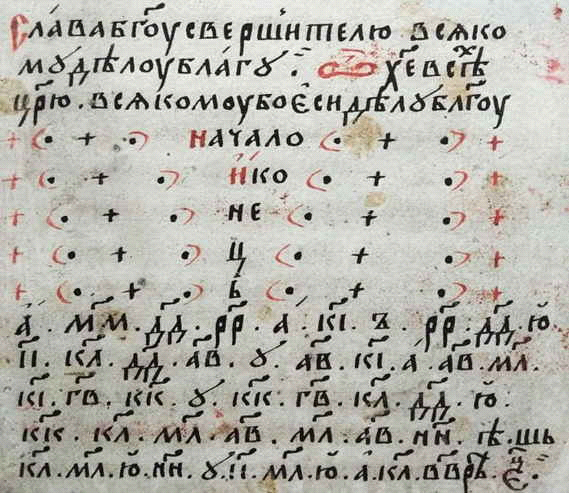 Слава б҃гоу свершителю всяко
му дѣлоу благу · х҃е все҃
цр҃ю · всякомоу бо еси дѣлу бл҃гоу
( • + • ) начало ( • + • )
+ ( • + • ) и ко ( • + • ) +
+ ( • + • ) не ( • + • ) +
+ ( • + • ) ц ( • + • ) +
+ ( • + • ) ь ( • + • ) +
а҃ . м҃м . д҃д . р҃р . а҃ . к҃і . ъ . р҃р . д҃д . ю .
і҃і . к҃л . д҃д . а҃в . ꙋ . а҃в . к҃і . а . а҃в . м҃л .
к҃і . г҃в . к҃к . ꙋ . к҃к . г҃в . к҃л . д҃д . ю .
к҃к . к҃л . м҃л . а҃в . м҃л . а҃в . н҃н . гѣ . щь
к҃л . м҃л . ю . н҃н . ꙋ . і҃і . м҃л . ю . а . к҃л .